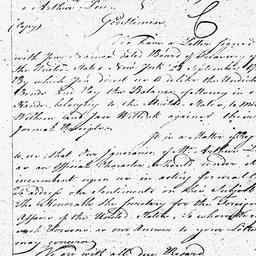 & Arthur Lee
(Copy) Gentlemen,
We have a Letter signed
with Your Names dated Board of Treasury of
the United States New York 23 September 17
By which you direct us to deliver the Undivided
Bonds and Pay the Balance of Money in our
Hands, belonging to the United States, to Messrs
Wilhem and Jan Willink against their
formal Receipts.
It is a Matter of
to us, that Your Ignorance of Mr. Arthur Lee
as an Official Character, should render it
incumbent upon us in acting formally to
address our Sentiments on this Subject
the Honorable the Secretary for the Foreign
Affairs of the United States, to whom
as our Answer to your Letter
may concern
We are with all due Regard